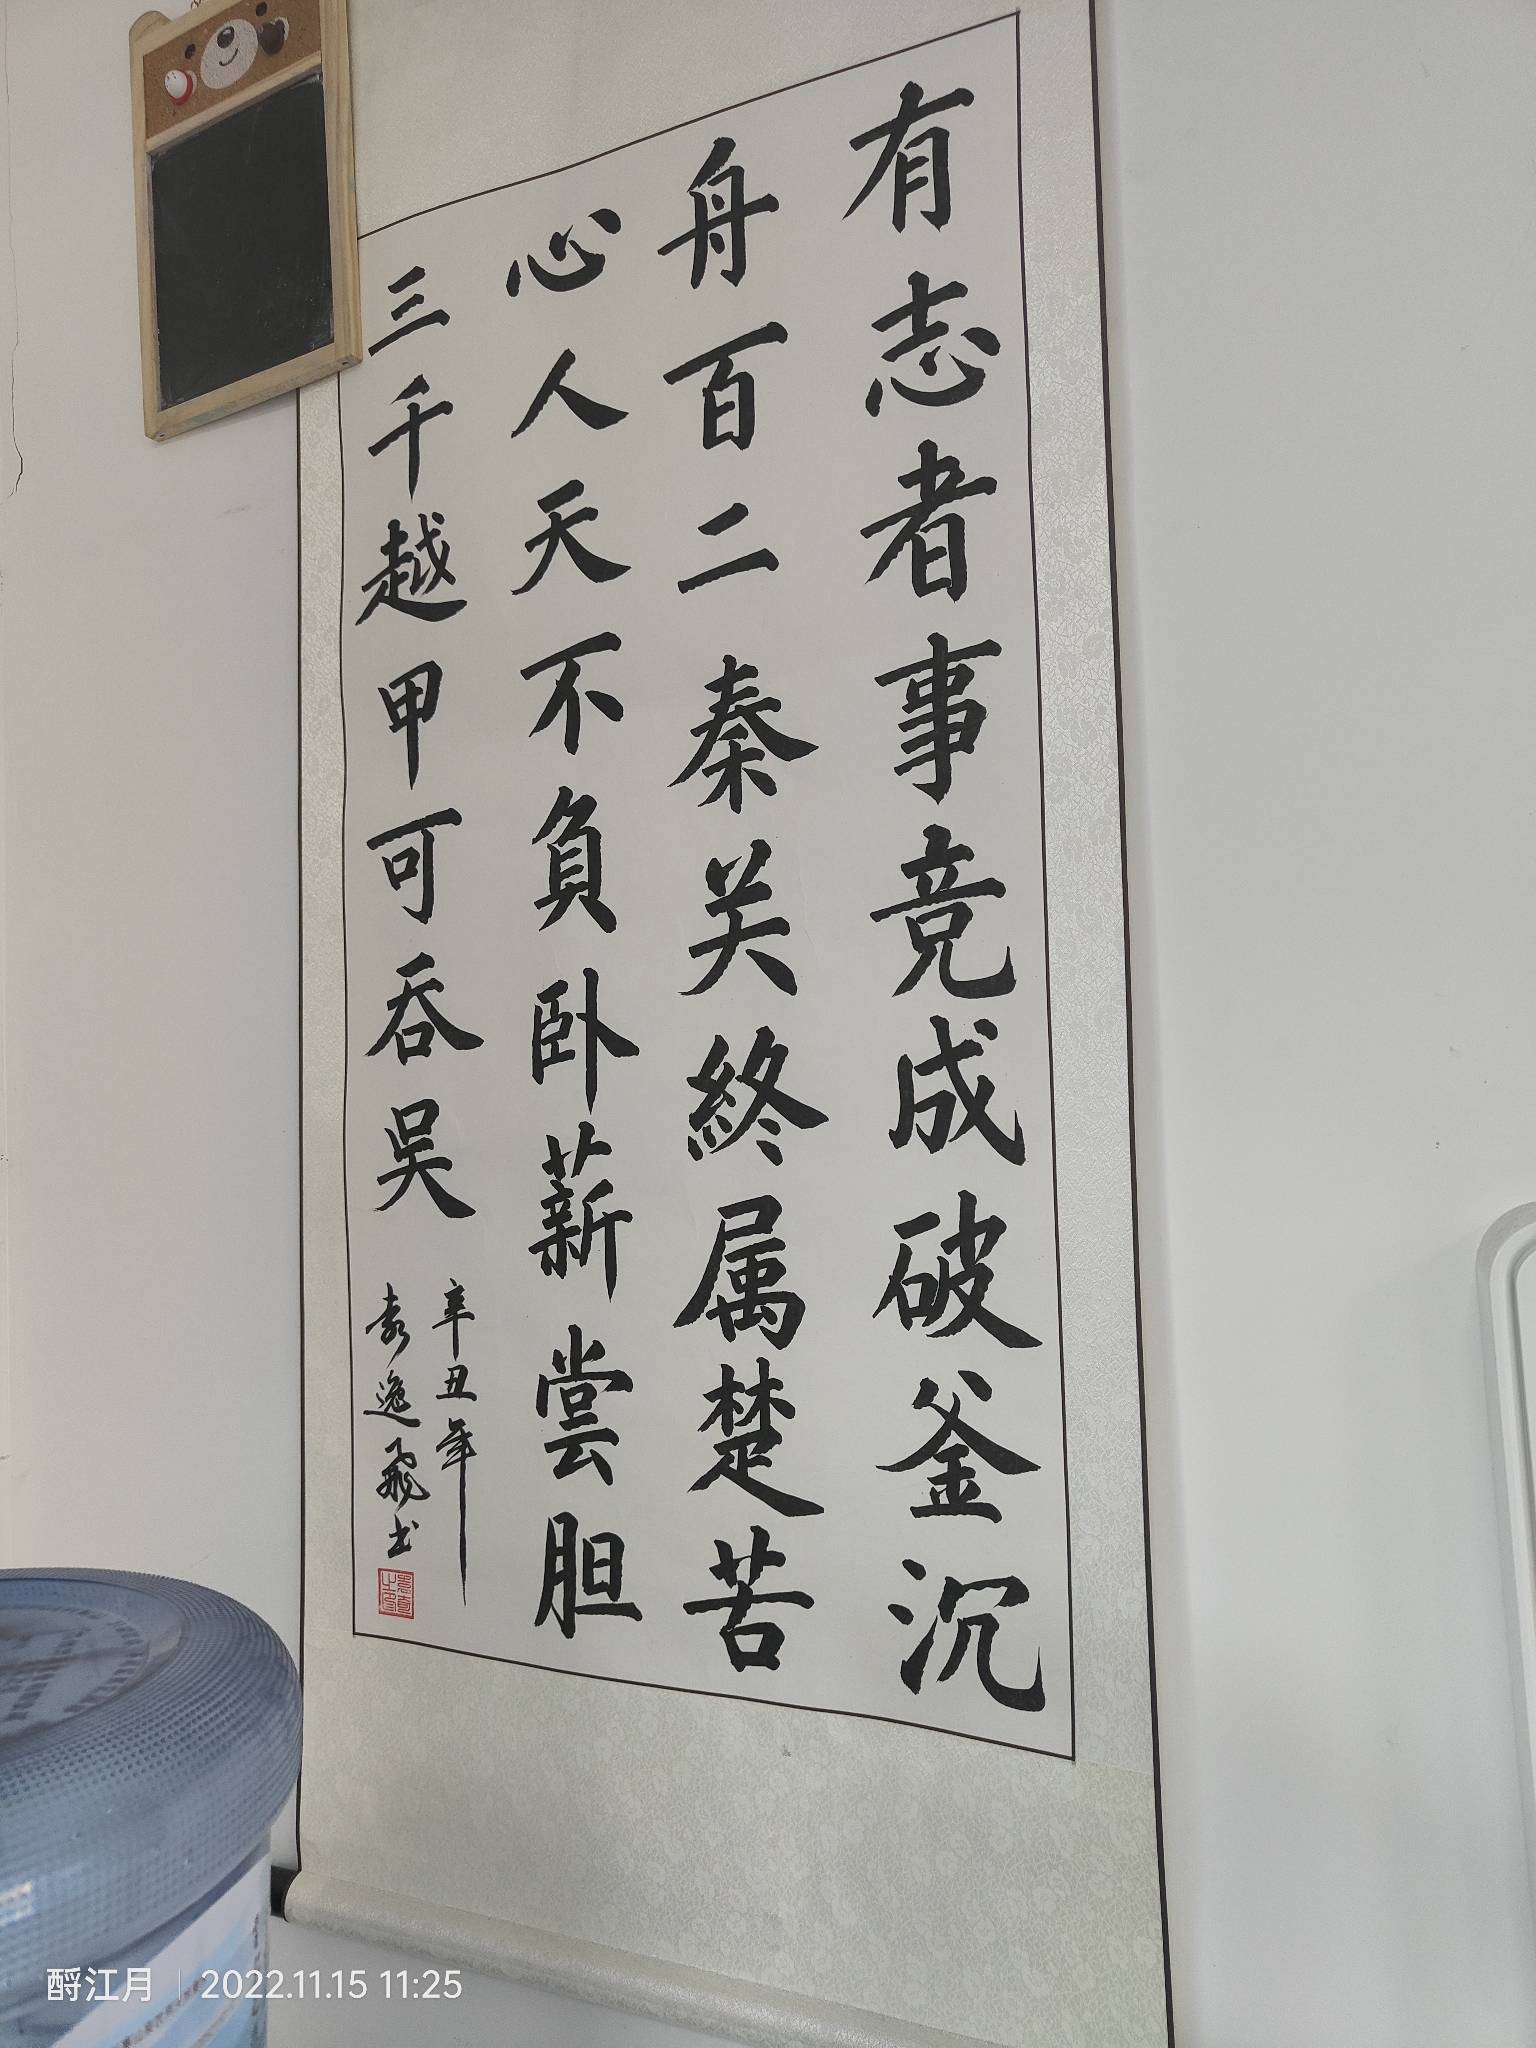 有志者事竟成破釜沉
舟百二秦关終属楚苦
心人天不負卧薪尝胆
三千越甲可吞吴
辛丑年
袁逸飛书
酹江月 | 2022.11.15 11:25